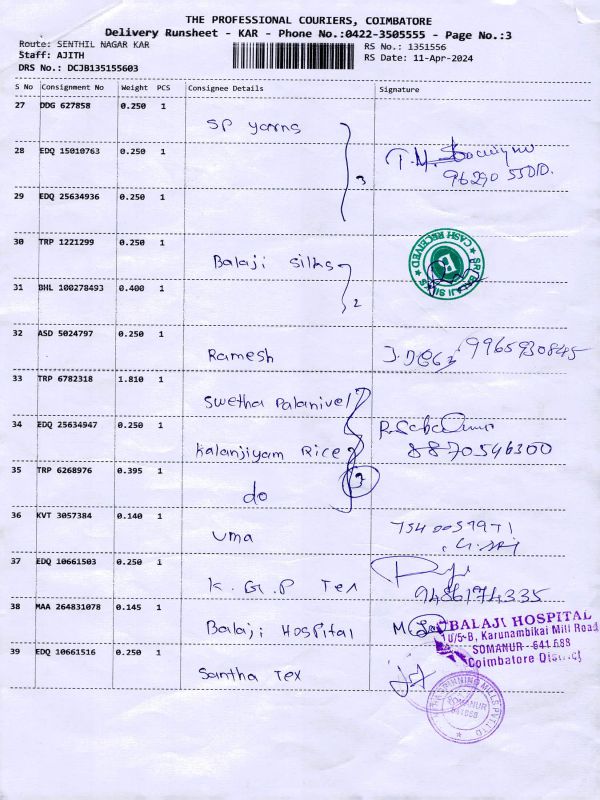 THE PROFESSIONAL COURIERS, COIMBATORE
Delivery Runsheet - KAR - Phone No.:0422-3505555 - Page No.:3
Route: SENTHIL NAGAR KAR
RS No.: 1351556
Staff: AJITH
RS Date: 11-Apr-2024
DRS No.: DCJB135155603
S No Consignment No Weight PCS Consignee Details Signature
27 DDG 627858 0.250 1
SP yarns
28 EDQ 15010763 0.250 1
3
29 EDQ 25634936 0.250 1
30 TRP 1221299 0.250 1
Balaji silks
SRI BALAJI SILKS
CASH RECEIVED
31 BHL 100278493 0.400 1
2
32 ASD 5024797 0.250 1
Ramesh 9965930845
33 TRP 6782318 1.810 1
Swetha Palanivel
34 EDQ 25634947 0.250 1
Kalanjiyam Rice 8870546300
35 TRP 6268976 0.395 1
do
36 KVT 3057384 0.140 1
Uma
37 EDQ 10661503 0.250 1
K.G.P Tex 9486174335
38 MAA 264831078 0.145 1
Balaji Hospital
BALAJI HOSPITAL
10/5-B, Karunambikai Mill Road
SOMANUR - 641 668
Coimbatore District
39 EDQ 10661516 0.250 1
Santha Tex
SPINNING MILLS PVT LTD
SOMANUR
641668